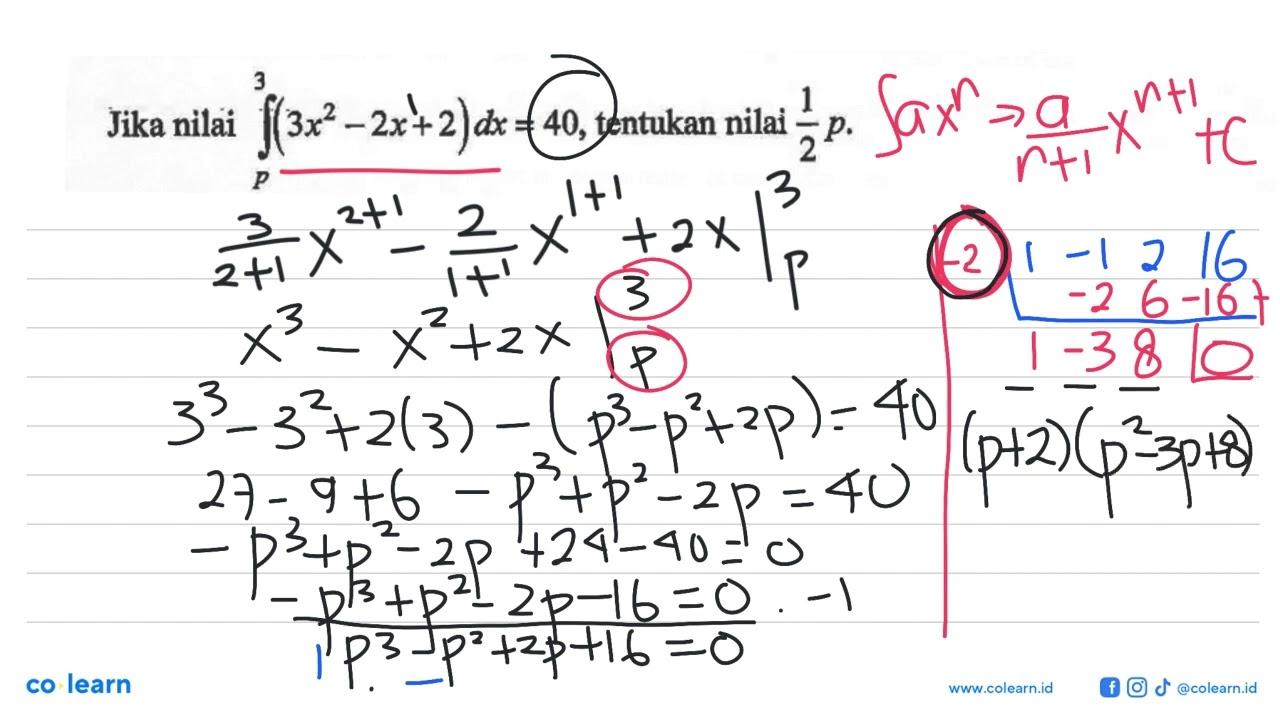 Jika nilai ∫ₚ³ (3x² – 2x¹ + 2) dx = 40, tentukan nilai 1/2 p.
∫axⁿ → a/(n+1) xⁿ⁺¹ + C
3/(2+1) x²⁺¹ – 2/(1+1) x¹⁺¹ + 2x |ₚ³
x³ – x² + 2x |ₚ³
3³ – 3² + 2(3) – (p³ – p² + 2p) = 40
27 – 9 + 6 – p³ + p² – 2p = 40
– p³ + p² – 2p + 24 – 40 = 0
– p³ + p² – 2p – 16 = 0 . –1
1 p³ – p² + 2p + 16 = 0
–2 1 –1 2 16
–2 6 –16 +
1 –3 8 0
(p+2)(p²–3p+8)
co learn
www.colearn.id
@colearn.id